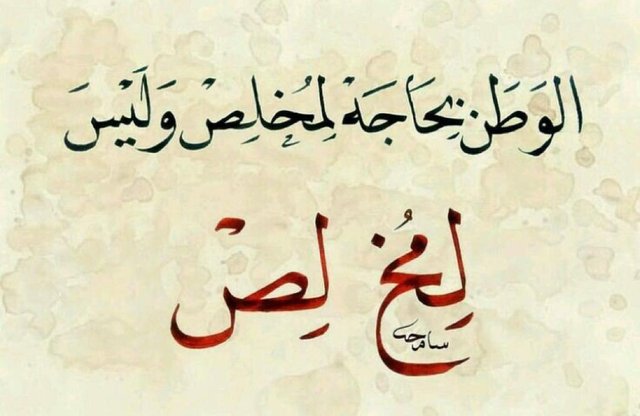 الوَطَن بِحَاجَةْ لِمُخلِصْ وَلَيْسَ
لِمُخ لِصْ